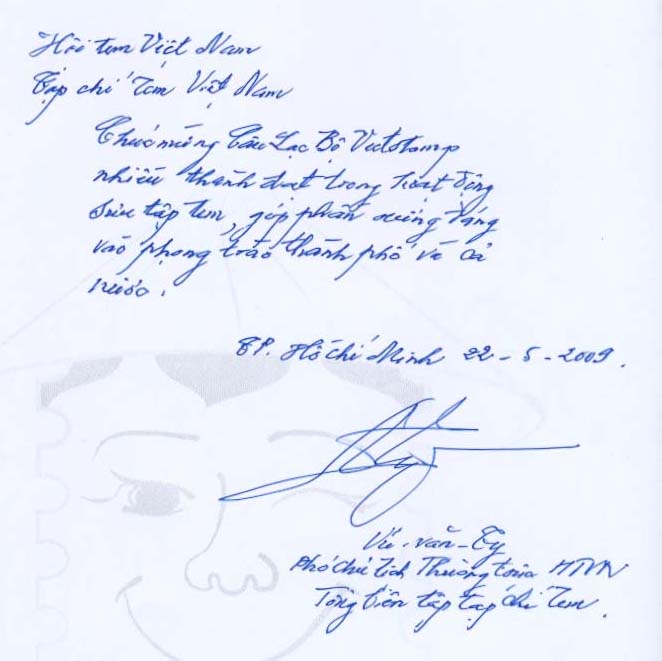 Hội tem Việt Nam
Tạp chí Tem Việt Nam
Chúc mừng Câu Lạc Bộ Vietstamp
nhiều thành đạt trong hoạt động
sưu tập tem, góp phần xứng đáng
vào phong trào thành phố và cả
nước.
TP. Hồ Chí Minh 22-5-2009.
Vũ-văn-Tỵ
Phó chủ tịch Thường trực HTVN
Tổng biên tập tạp chí Tem.